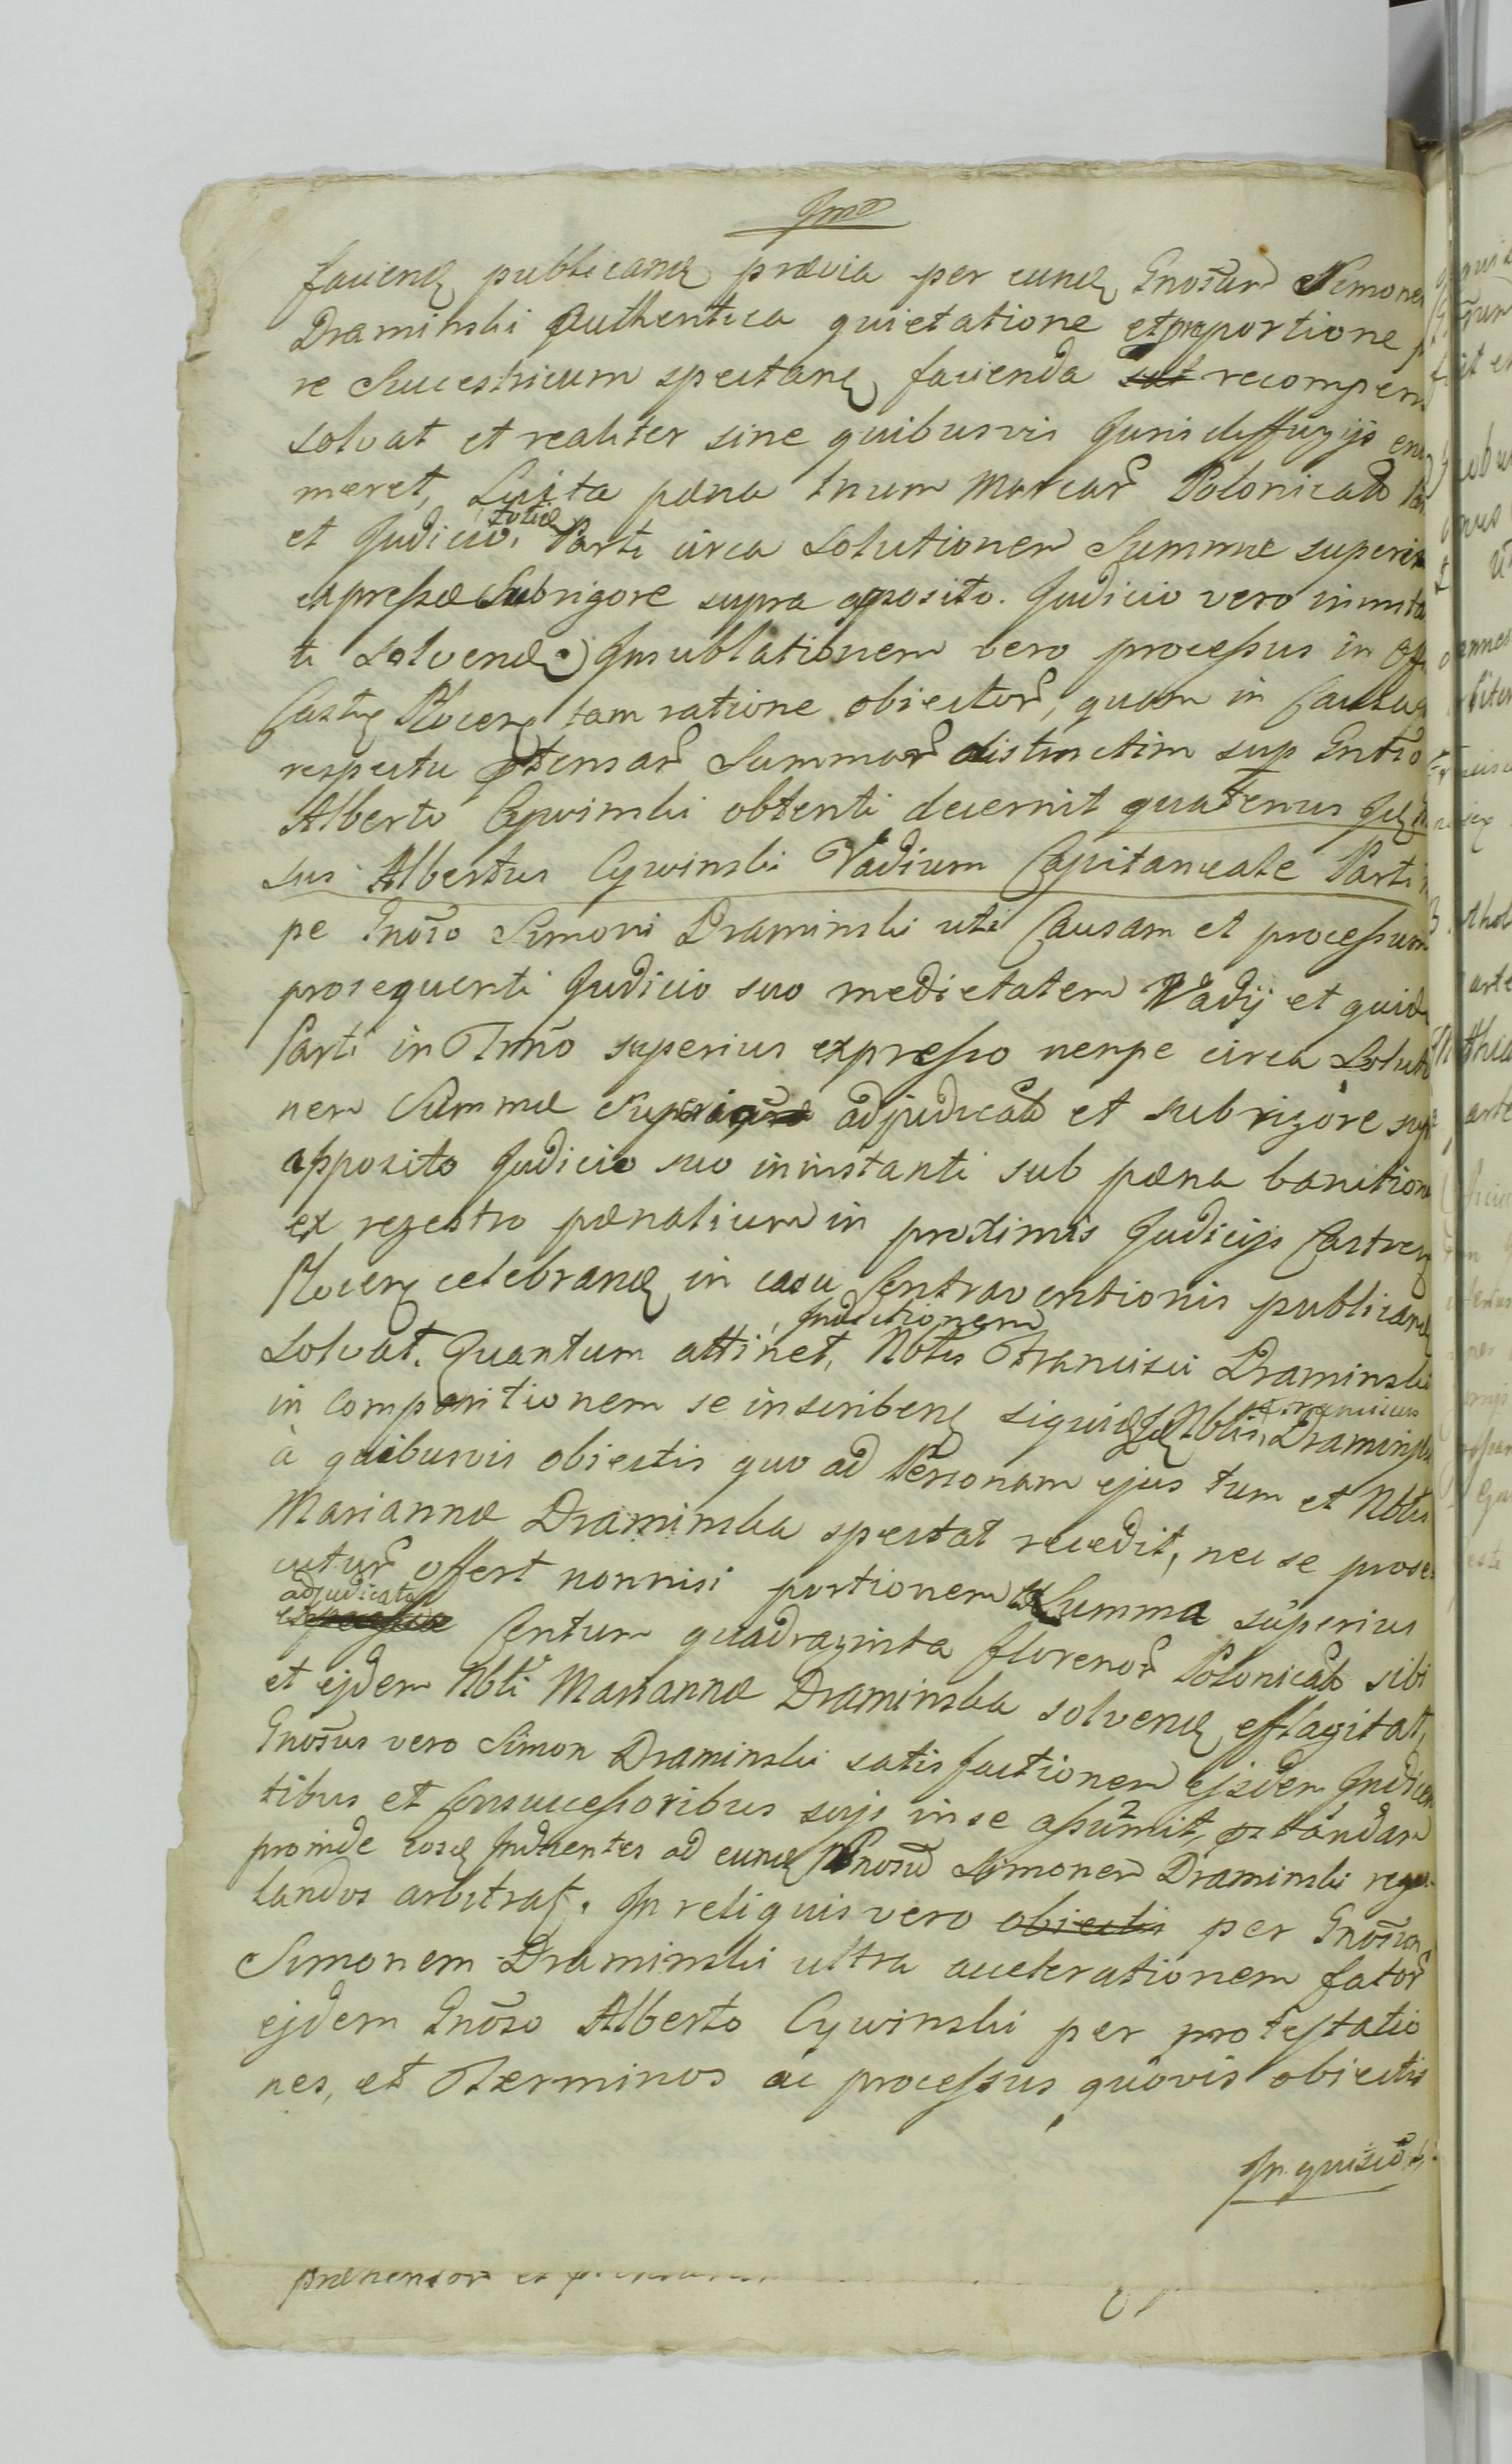 faciend publicand prævia per eund Gnosum Simonem
Draminski Authentica quietatione et proportione
re Successivum spectan facienda recompen
solvat et realiter sine quibusvis Juris diffugijs enu
meret, Luita pæna trium Marcar Polonical
et Judicio, toties Parti circa Solutionem Summæ superius
expressæ Sub rigore supra apposito. Judicio vero in insta
ti solvend. In sublationem vero processus in Offo
Castr Plocen tam ratione obiector, quam in Causa
respectu ptensar Summar distinctim sup Gnoso
Alberto Cywinski obtenti decernit quatenus
sus Albertus Cywinski Vadium Capitaneale Parti
pe Gnoso Simoni Draminski uti Causam et processum
prosequenti Judicio suo medietatem Vadij et quid
Parti in Trno superius expresso nempe circa Soluti
nem Summæ Superius adjudicato et sub rigore supra
apposito Judicio suo in instanti sub pæna banitionis
ex regestro pænalium in proximis Judicijs Castren
Plocen celebrand in casu Contraventionis publicand
solvat. Quantum attinet, Inductionem Nobis Francisci Draminski
in compositionem se inscriben siquid Nobilis Franciscus Draminski
à quibusvis obiectis quo ad Personam ejus tum et Nobis
Mariannæ Draminska spectat recedit, nec se prose
cutur offert nonnisi portionem Summa superius
adjudicata Centum quadraginta florenor Polonical sibi
et ejdem Nobli Mariannæ Draminska solvend efflagitat,
Gnosus vero Simon Draminski satisfactionem ejsdem Inducen
tibus et Consuccessoribus suijs in se assumit,
proinde eosd Inducentes ad eund Gnosum Simonem Draminski regu
landos arbitrat. In reliquis vero obiectis per Gnosum
Simonem Draminski ultra accelerationem fator
ejdem Gnoso Alberto Cywinski per protestatio
nes, et Terminos ac processus quovis obiectis